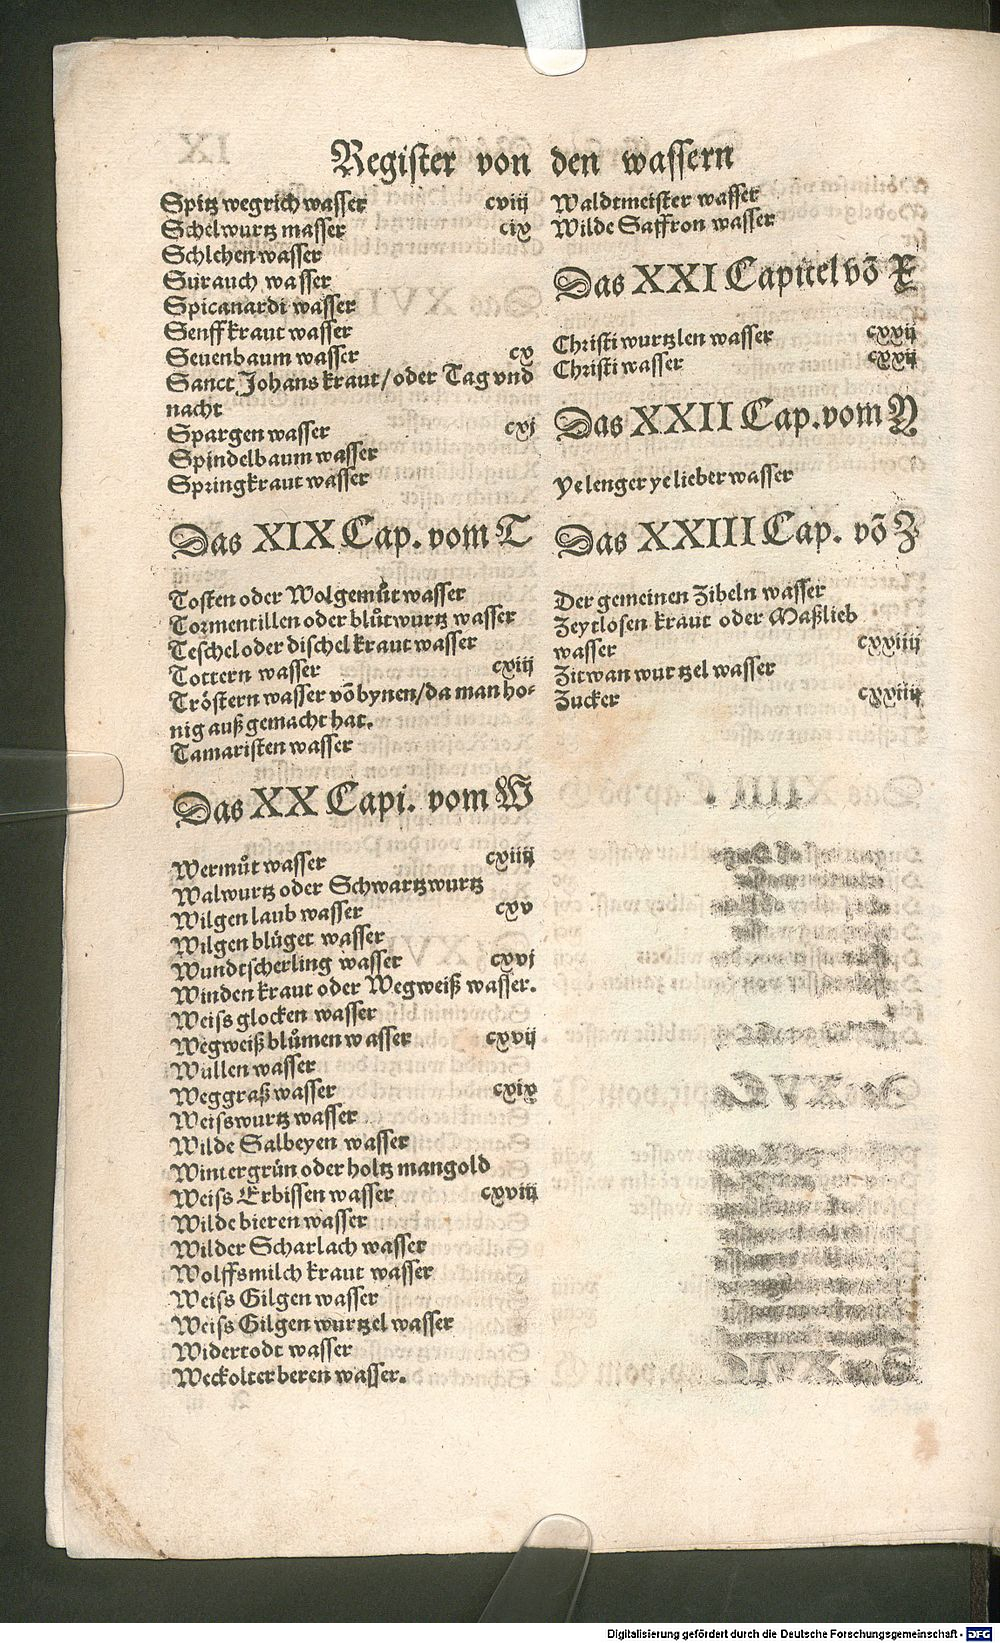 Register von den wassern
Spitz wegrich wasser cviij
Schelwurtz masser cix
Schlehen wasser
Surauch wasser
Spicanardi wasser
Senffkraut wasser
Seuenbaum wasser cx
Sanct Johans kraut/oder Tag vnd
nacht
Spargen wasser cxj
Spindelbaum wasser
Springkraut wasser
Das XIX Cap. vom T
Tosten oder Wolgemůt wasser
Tormentillen oder blůtwurtz wasser
Teschel oder dischel kraut wasser
Tottern wasser cxiij
Tröstern wasser võ bynen/da man ho-
nig auß gemacht hat.
Tamaristen wasser
Das XX Capi. vom W
Wermůt wasser cxiiij
Walwurtz oder Schwartzwurtz
Wilgen laub wasser cxv
Wilgen blüget wasser
Wundtscherling wasser cxvj
Winden kraut oder Wegweiß wasser.
Weiss glocken wasser
Wegweiß blůmen wasser cxvij
Wullen wasser
Weggraß wasser cxix
Weisswurtz wasser
Wilde Salbeyen wasser
Wintergrün oder holtz mangold
Weiss Erbissen wasser cxviij
Wilde bieren wasser
Wilder Scharlach wasser
Wolffsmilch kraut wasser
Weiss Gilgen wasser
Weiss Gilgen wurtzel wasser
Widertodt wasser
Weckolterberen wasser.
Waldtmeister wasser
Wilde Saffron wasser
Das XXI Capitel võ X
Christi wurtzlen wasser cxxij
Christi wasser cxxij
Das XXII Cap. vom Y
Yelenger yelieber wasser
Das XXIII Cap. võ Z
Der gemeinen Zibeln wasser
Zeytlosen kraut oder Maßlieb
wasser cxxiiij
Zitwan wurtzel wasser
Zucker cxxiiij
Digitalisierung gefördert durch die Deutsche Forschungsgemeinschaft - DFG